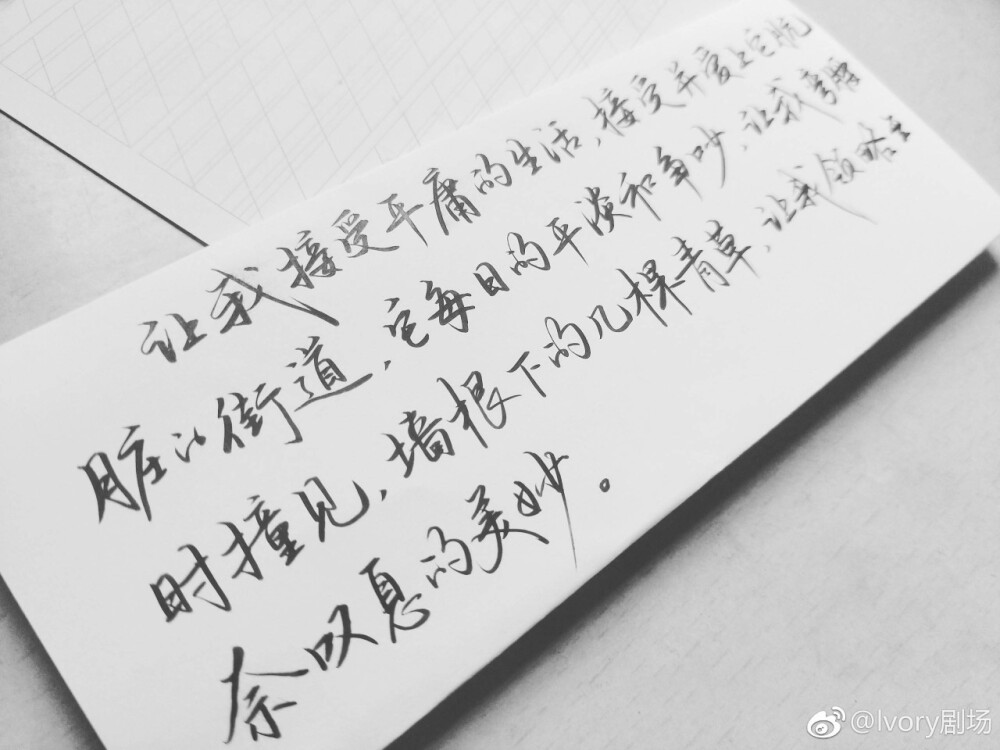 让我接受平庸的生活,接受并爱上它肮
脏的街道,它每日的平淡和争吵,让我弯腰
时撞见,墙根下的几棵青草,让我领略无
奈叹息的美妙。
@Ivory剧场